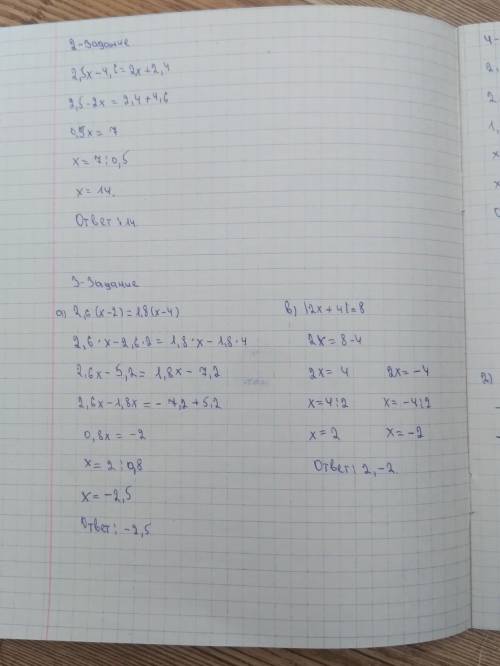 2-Задание
2,5x-4,6=2x+2,4
2,5-2x=2,4+4,6
0,5x=7
x=7:0,5
x=14.
Ответ:14
3-Задание
а) 2,6(x-2)=1,8(x-4)
2,6·x-2,6·2=1,8·x-1,8·4
2,6x-5,2=1,8x-7,2
2,6x-1,8x=-7,2+5,2
0,8x=-2
x=2:0,8
x=-2,5
Ответ: -2,5
в) |2x+4|=8
2x=8-4
2x=4 2x=-4
x=4:2 x=-4:2
x=2 x=-2
Ответ: 2,-2
4-
2)